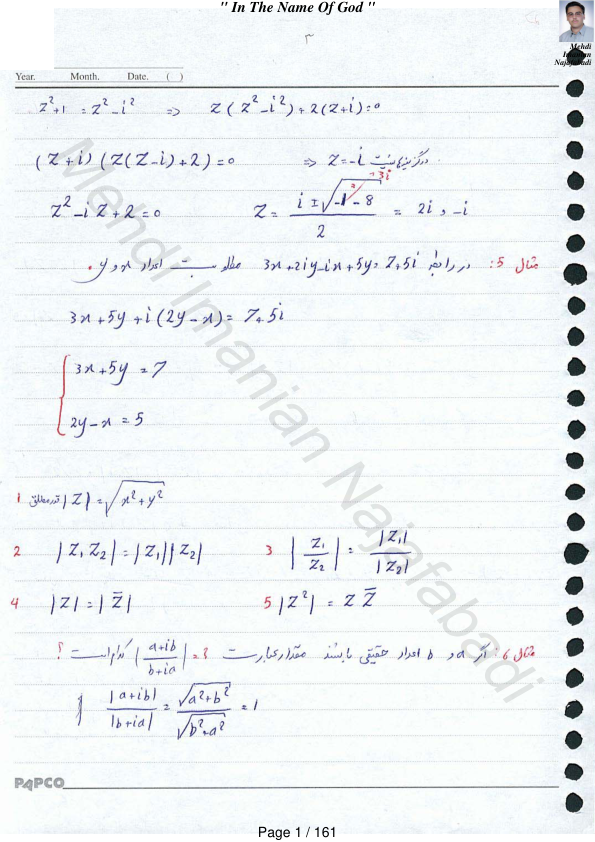 " In The Name Of God "
Mehdi
Imanian
Najafabadi
۳
Year. Month. Date. ( )
z²+1 = z²-i² => z(z²-i²)+2(z+i)=0
(z+i)(z(z-i)+2)=0 => z=-i
z²-iz+2=0 z= (i±√(-1-8))/2 = 2i و -i
+3i
مثال 5: در رابطه 3x+2iy-ix+5y=7+5i مطلوبست اعداد x و y.
3x+5y+i(2y-x)=7+5i
3x+5y=7
2y-x=5
1 قدر مطلق |z|=√(x²+y²)
2 |z₁z₂|=|z₁||z₂| 3 |z₁/z₂|=|z₁|/|z₂|
4 |z|=|z̄| 5 |z²|=z z̄
مثال 6: اگر a و b اعداد حقیقی باشند مقدار عبارت ?=|(a+ib)/(b+ia)| کدام است؟
|a+ib|/|b+ia| = √(a²+b²)/√(b²+a²) = 1
PAPCO
Mehdi Imanian Najafabadi
Page 1 / 161